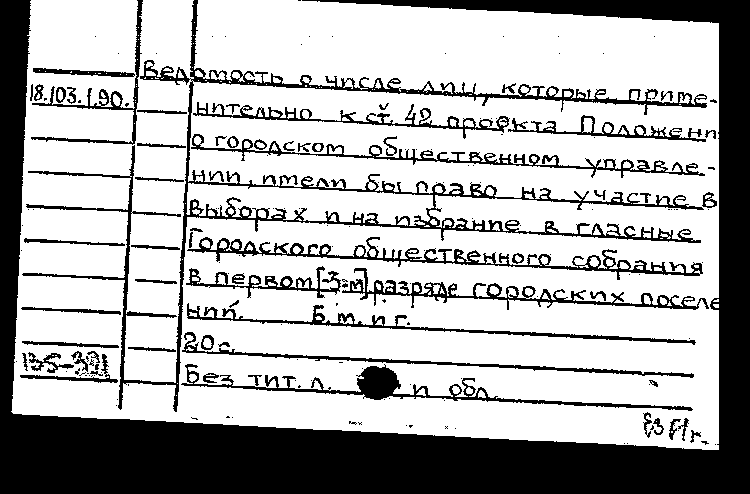 Ведомость о числе лиц, которые приме-
18.103.1.90.
нительно к ст. 42 проекта Положени
о городском общественном управле-
нии, имели бы право на участие в
выборах и на избрание в гласные
Городского общественного собрания
в первом [-3=м] разряде городских поселе
ний. Б.м. и г.
20 с.
Без тит. л. и обл.